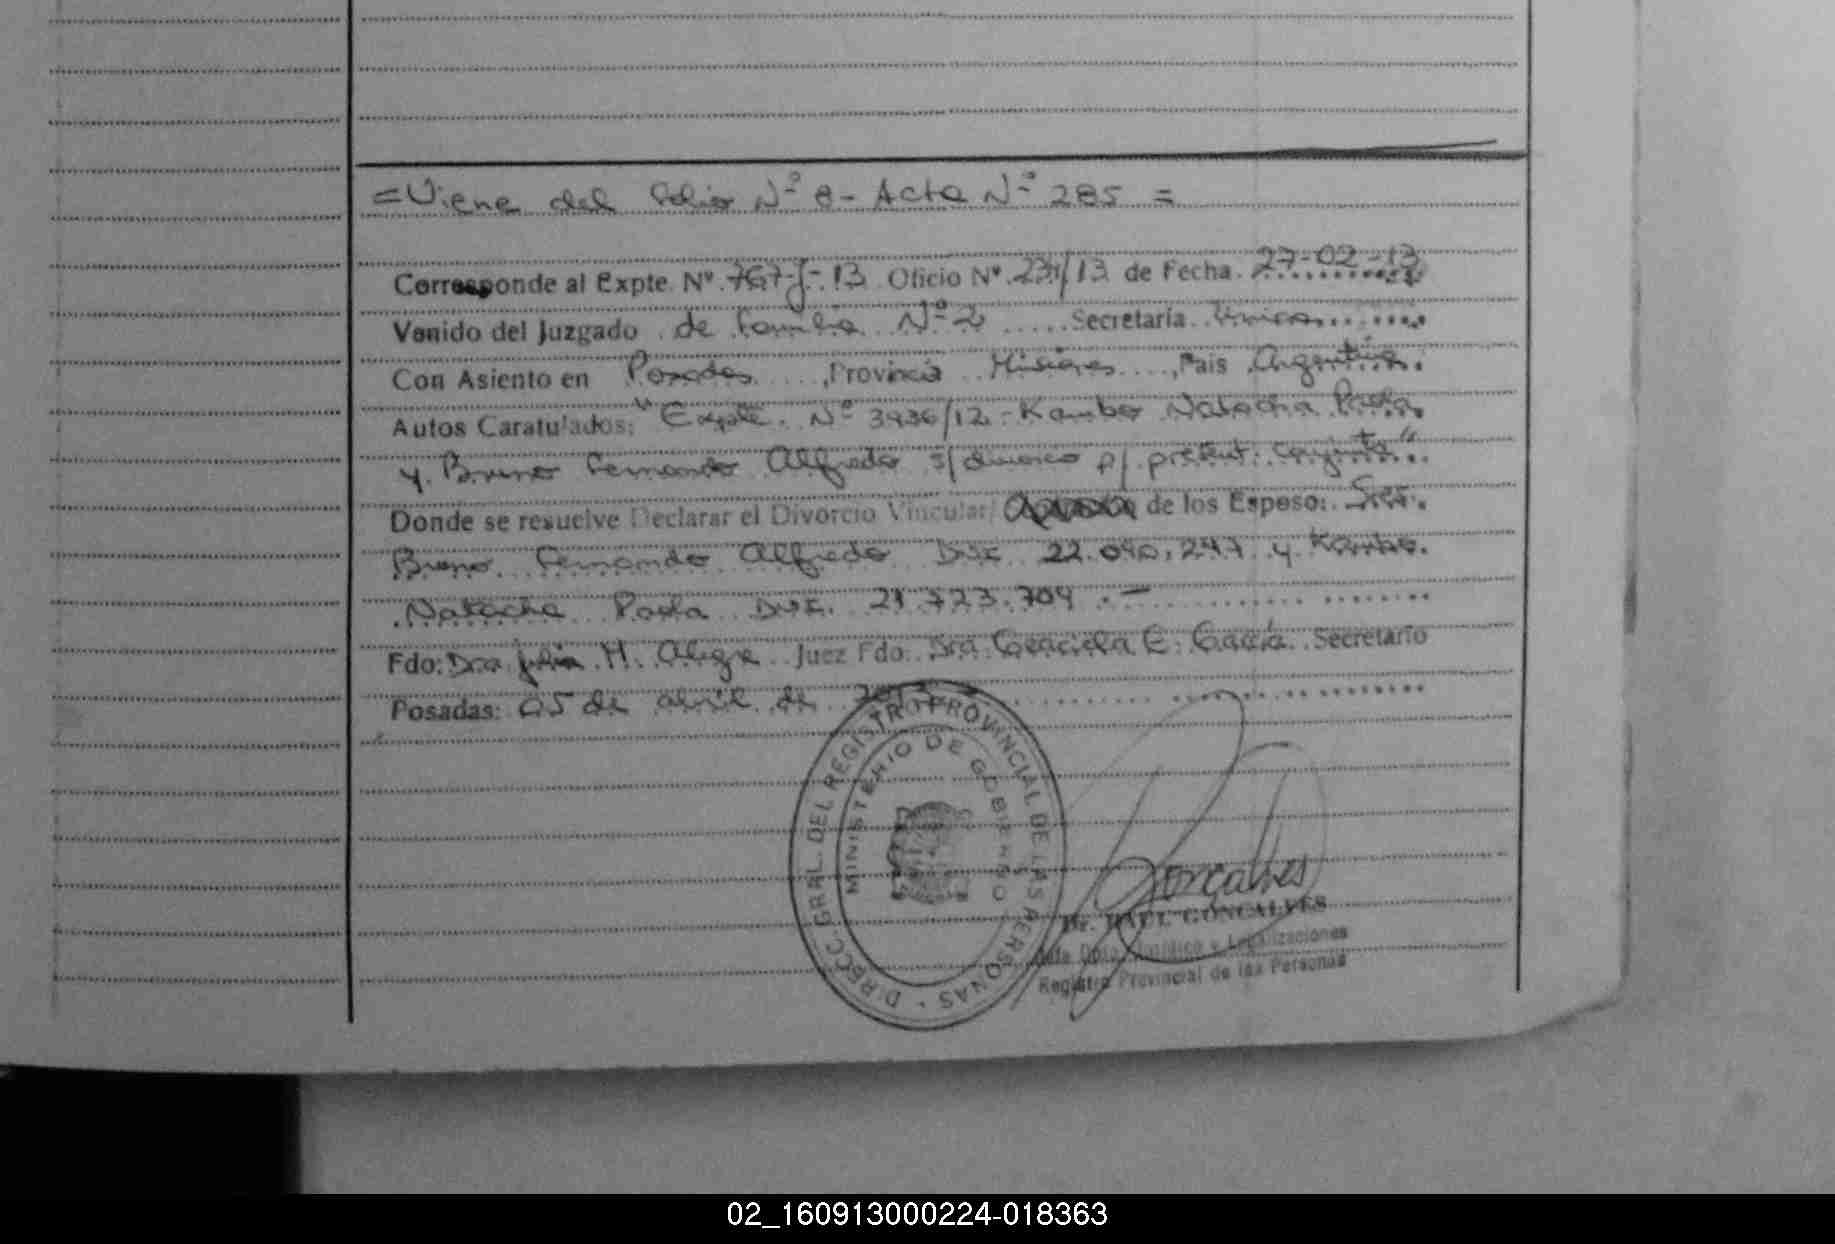 =Viene del Folio Nº 8- Acta Nº 285 =
Corresponde al Expte. Nº. 767-J-13 Oficio Nº. 231/13 de Fecha. 27-02-13
Venido del Juzgado de Familia Nº 2 Secretaría Unica
Con Asiento en Posadas, Provincia Misiones, País Argentina.
Autos Caratulados: "Expte. Nº 3936/12 - Natacha Paola
y Bruno Fernando Alfredo s/divorcio p/ present. conjunta".
Donde se resuelve Declarar el Divorcio Vincular/ de los Esposo: Sres.
Bruno Fernando Alfredo DNI. 22.090.247 y
Natacha Paola DNI. 21.723.704.-
Fdo: Dra Julia H. Alegre Juez Fdo: Dra Graciela E. García Secretario
Posadas: 05 de abril de 2013
DIRECC. GRAL. DEL REGISTRO PROVINCIAL DE LAS PERSONAS
MINISTERIO DE GOBIERNO
Goncalves
Dr. RAUL GONCALVES
Jefe Dpto. Jurídico y Legalizaciones
Registro Provincial de las Personas
02_160913000224-018363